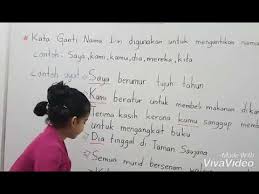 * Kata Ganti Nama Diri digunakan untuk menggantikan nama
contoh: Saya, kami, kamu, dia, mereka, kita
contoh ayat: Saya berumur tujuh tahun
Kami beratur untuk membeli makanan di
Terima kasih kerana kamu sanggup
untuk mengangkat buku
Dia tinggal di Taman Saujana
Semua murid bersenam
Made With
VivaVideo